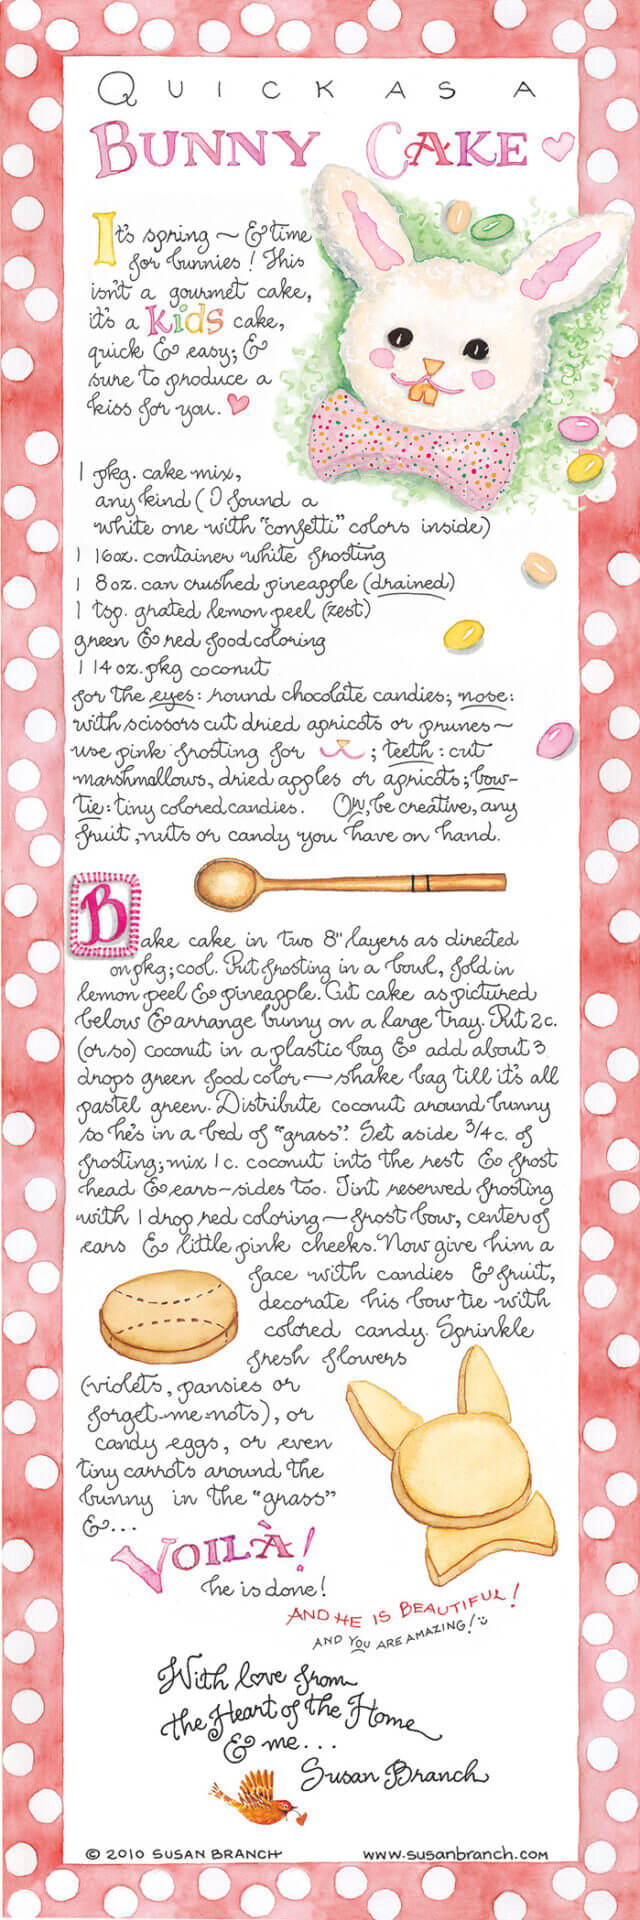 QUICK AS A
BUNNY CAKE
It's spring ~ & time
for bunnies! This
isn't a gourmet cake,
it's a kids cake,
quick & easy; &
sure to produce a
kiss for you.
1 pkg. cake mix,
any kind (I found a
white one with "confetti" colors inside)
1 16oz. container white frosting
1 8 oz. can crushed pineapple (drained)
1 tsp. grated lemon peel (zest)
green & red food coloring
1 14 oz. pkg coconut
for the eyes: round chocolate candies; nose:
with scissors cut dried apricots or prunes ~
use pink frosting for ; teeth: cut
marshmallows, dried apples or apricots; bow-
tie: tiny colored candies. OR, be creative, any
fruit, nuts or candy you have on hand.
Bake cake in two 8" layers as directed
on pkg; cool. Put frosting in a bowl, fold in
lemon peel & pineapple. Cut cake as pictured
below & arrange bunny on a large tray. Put 2 c.
(or so) coconut in a plastic bag & add about 3
drops green food color ~ shake bag till it's all
pastel green. Distribute coconut around bunny
so he's in a bed of "grass". Set aside 3/4 c. of
frosting; mix 1 c. coconut into the rest & frost
head & ears ~ sides too. Tint reserved frosting
with 1 drop red coloring ~ frost bow, center of
ears & little pink cheeks. Now give him a
face with candies & fruit,
decorate his bow tie with
colored candy. Sprinkle
fresh flowers
(violets, pansies or
forget-me-nots), or
candy eggs, or even
tiny carrots around the
bunny in the "grass"
& ...
VOILÀ!
he is done!
AND HE IS BEAUTIFUL!
AND YOU ARE AMAZING!
With love from
the Heart of the Home
& me...
Susan Branch
© 2010 SUSAN BRANCH
www.susanbranch.com